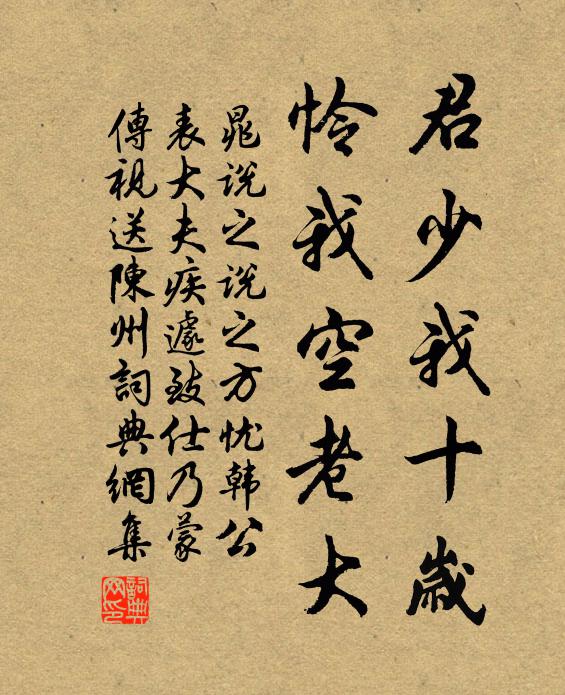 君少我十歲
憐我空老大
晁說之說之方忧韩公
表大夫疾遽致仕乃蒙
傳視送陳州詞典網集
詞典
网印